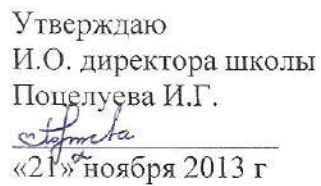 Утверждаю
И.О. директора школы
Поцелуева И.Г.
«21» ноября 2013 г